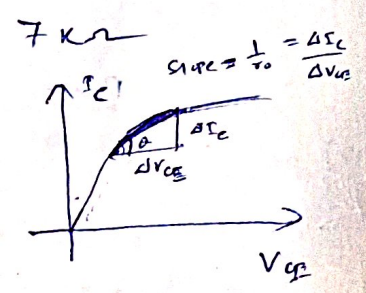 7 KΩ
slope = 1/r₀ = ΔI_C / ΔV_CE
I_C
θ
ΔI_C
ΔV_CE
V_CE